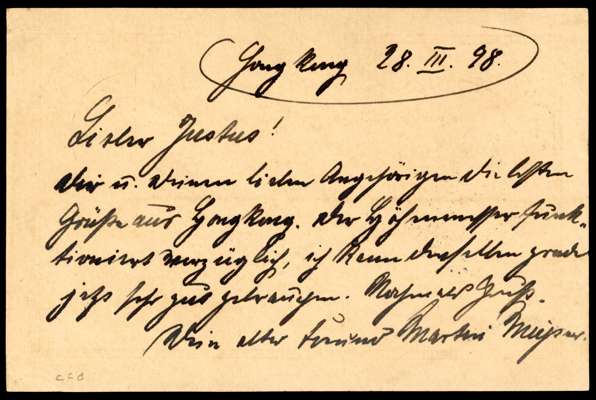 Hongkong 28. III. 98.
Lieber Justus!
Dir u. Deinen lieben Angehörigen die besten
Grüße aus Hongkong. Der Höhenmesser funk-
tioniert vorzüglich, ich kann denselben grade
jetzt sehr gut gebrauchen. Nochmals Gruß.
Dein alter Freund Martin